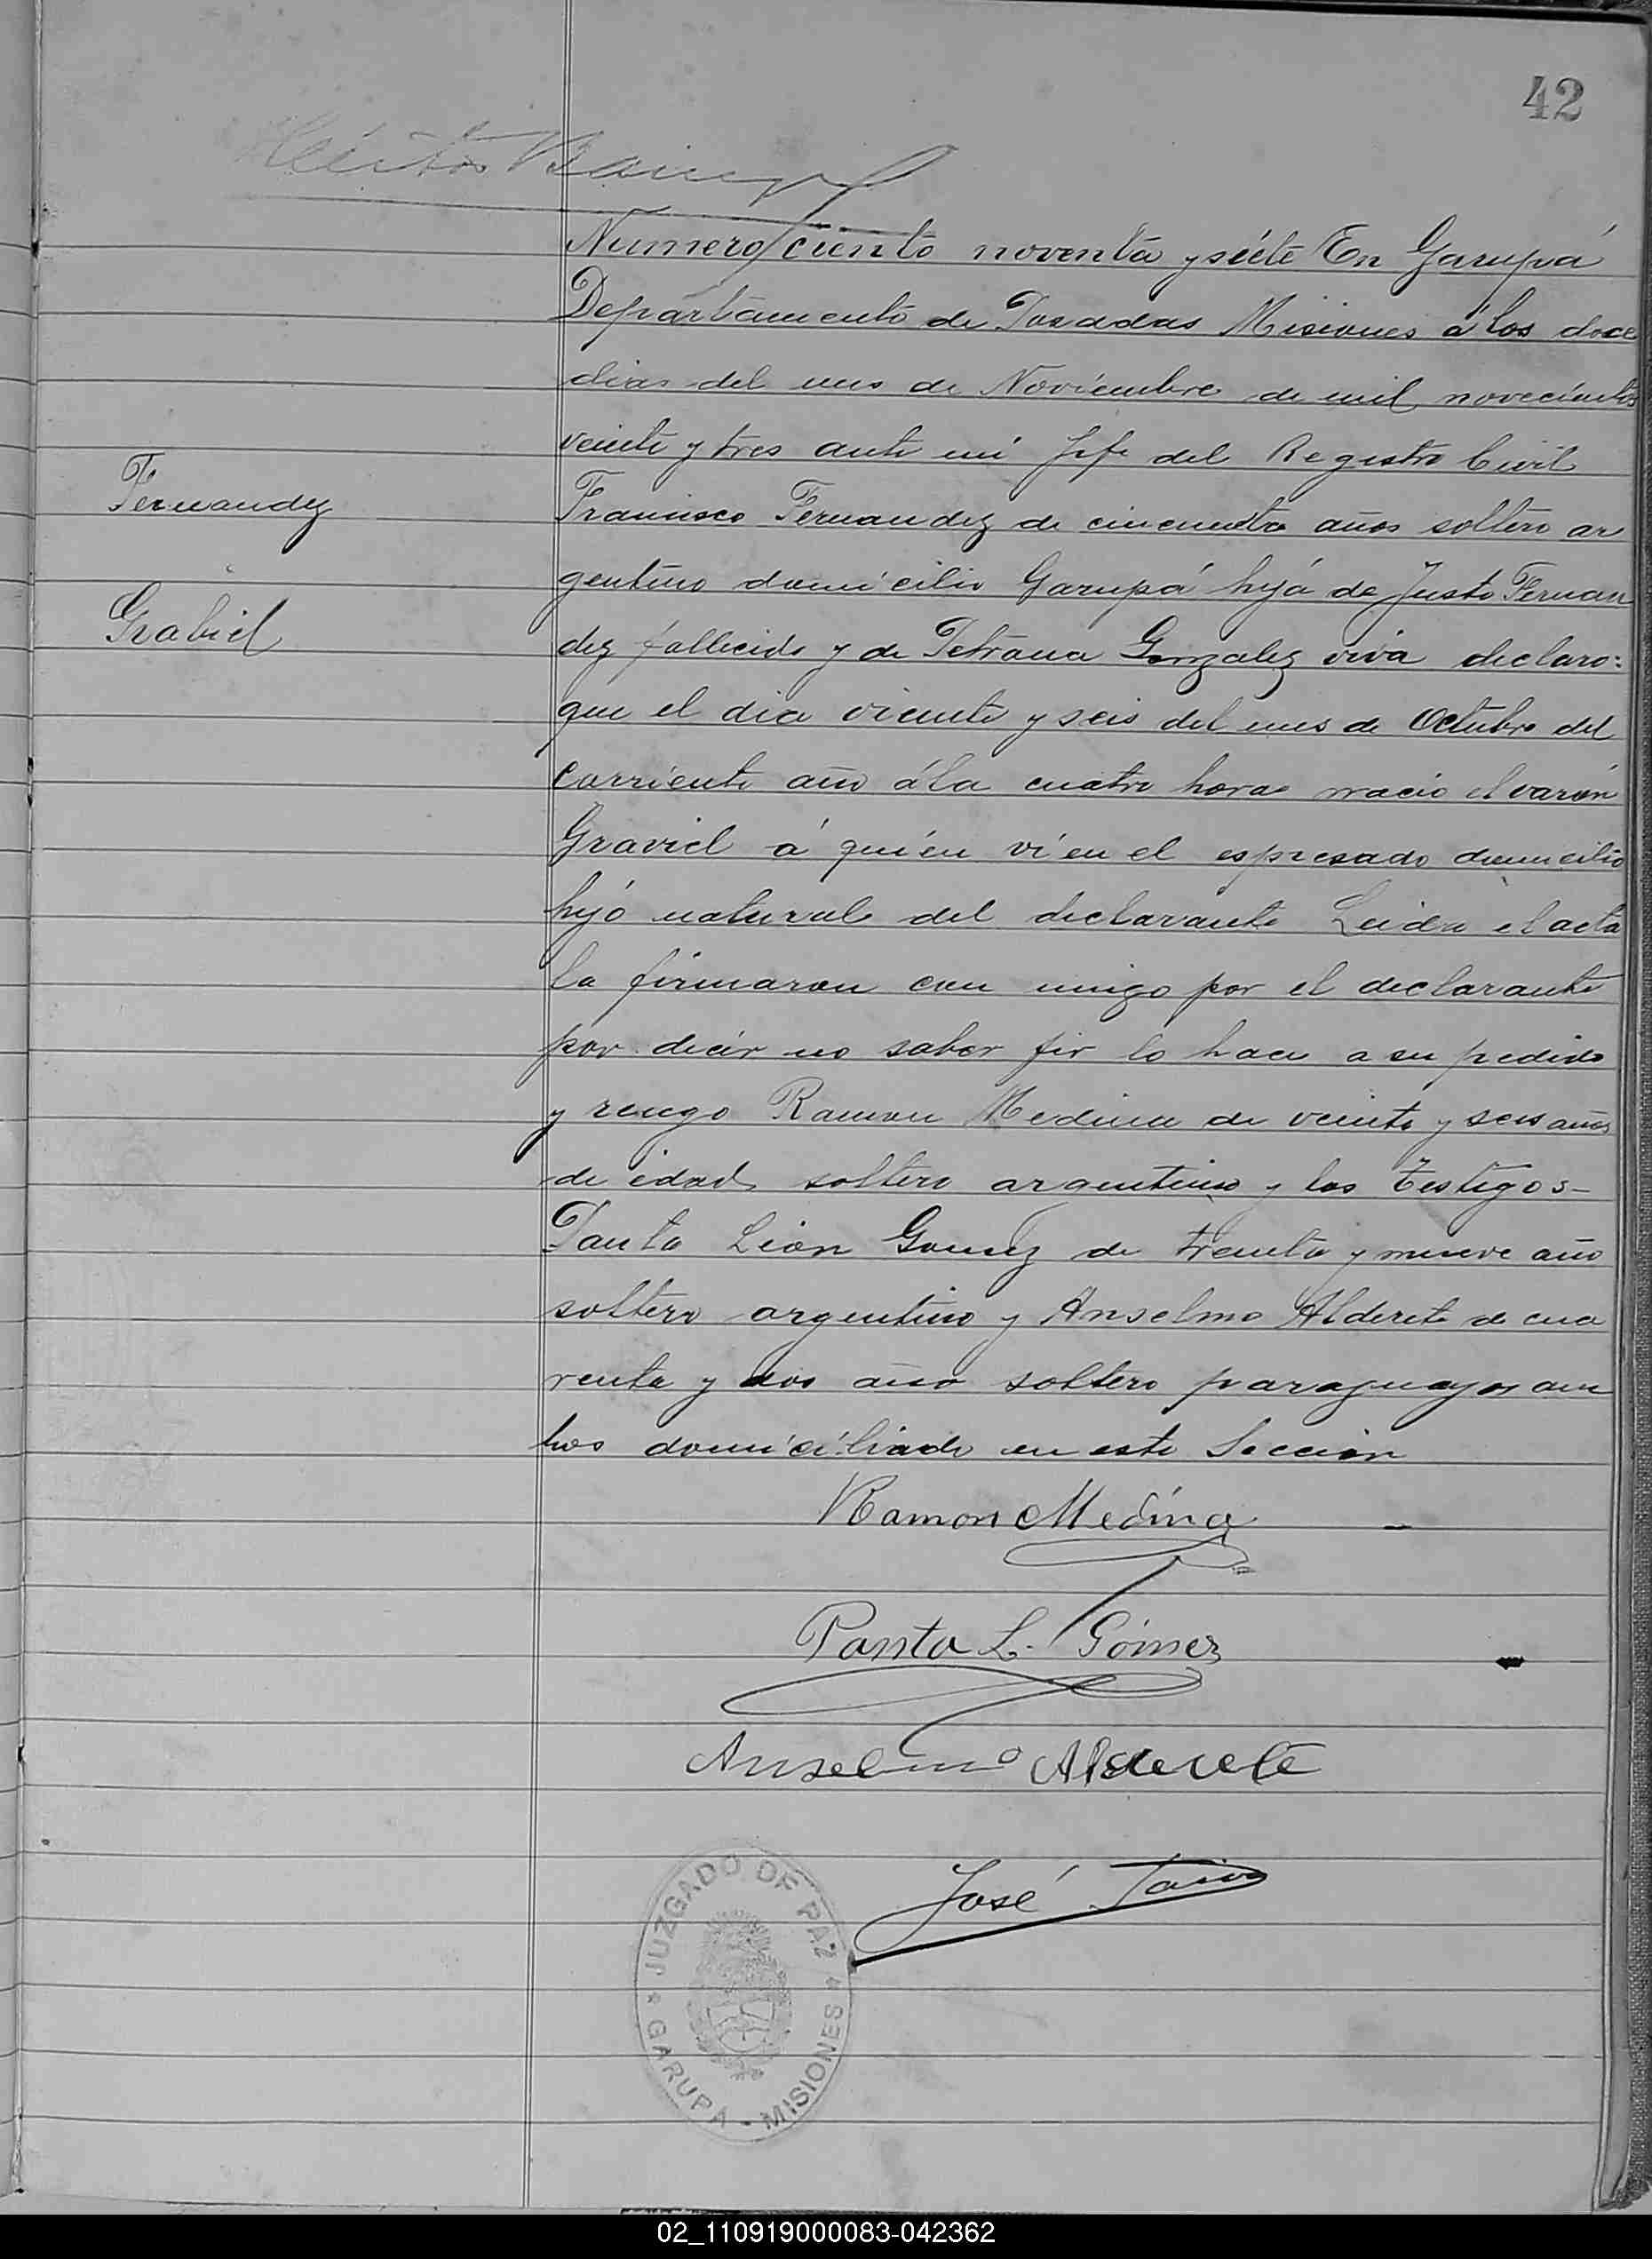 42
Numero ciento noventa y siete En Garupá
Departamento de Posadas Misiones á los doce
dias del mes de Noviembre de mil novecientos
veinte y tres ante mi Jefe del Registro Civil
Fernandez
Francisco Fernandez de cincuenta años soltero ar
gentino domicilio Garupá hijó de Justo Fernan
Grabiel
dez fallecido y de Petrona Gonzalez viva declaro:
que el dia viente y seis del mes de Octubre del
corriente año á la cuatro horas nacio el varón
Graviel á quién ví en el espresado domicilio
hijó natural del declarante Leida el acta
la firmaron con migo por el declarante
por decir no saber fir lo hace a su pedido
y ruego Ramon Medina de veinte y seis años
de edad soltero argentino y los testigos-
Panta León Gomez de treinta y nueve año
soltero argentino y Anselmo Alderete de cua
renta y dos año soltero paraguayos am
bos domiciliado en este Sección
Ramon Medina
Panta L. Gómez
Anselmo Alderete
José
JUZGADO DE PAZ
GARUPA - MISIONES
02_110919000083-042362